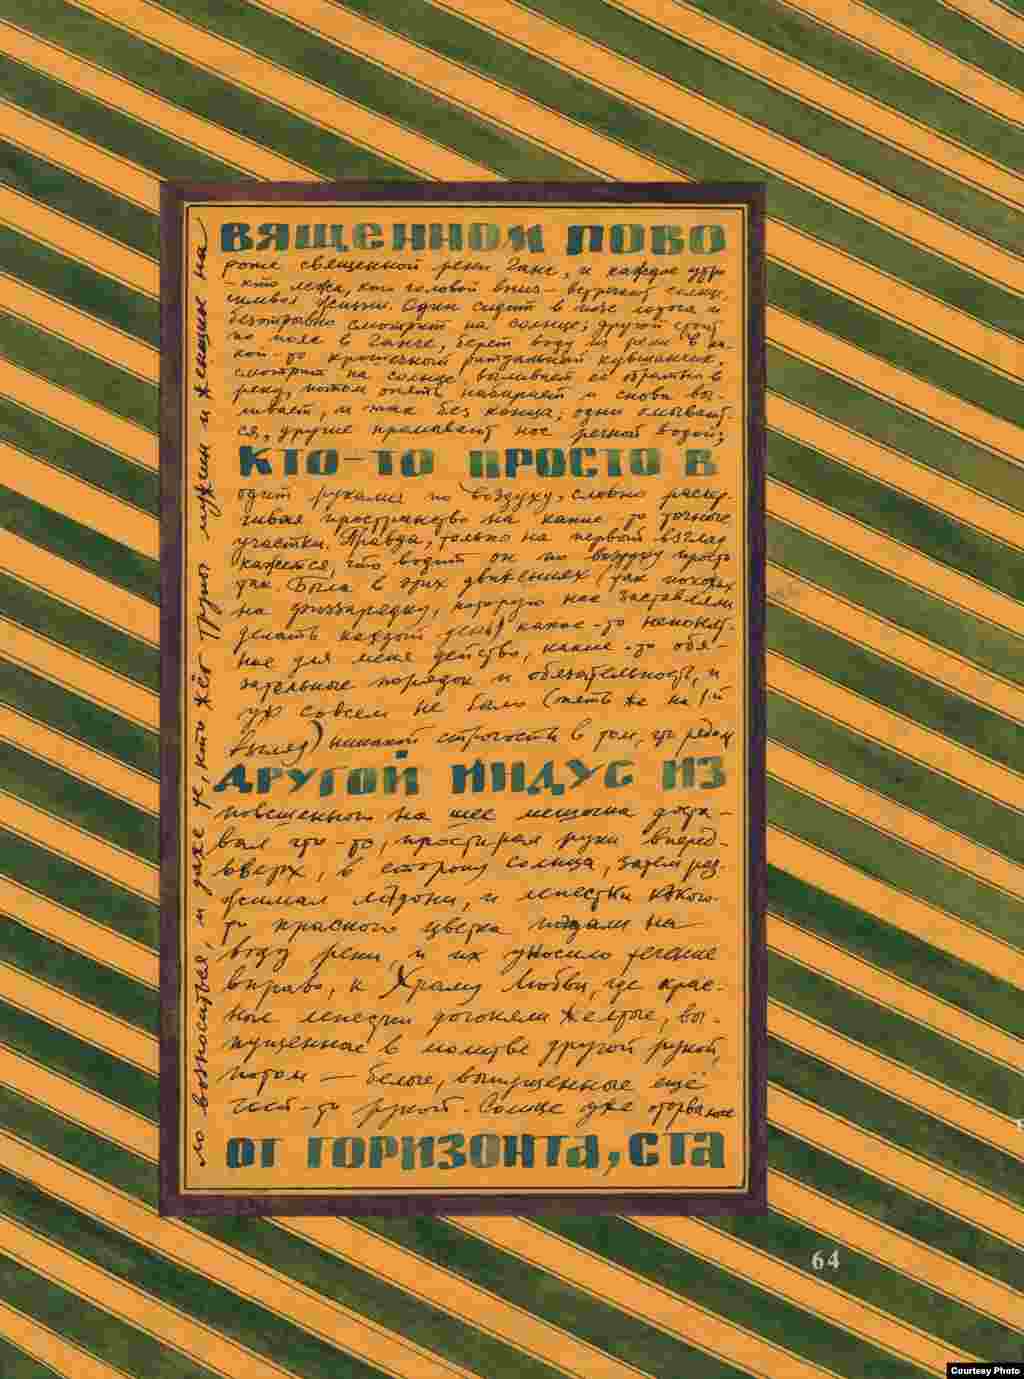 ВЯЩЕННОМ ПОВО
роте священной реки Ганг, и каждое утро
-кто лёжа, кто головой вниз- встречают солнце,
символ жизни. Один сидит в позе лотоса и
безотрывно смотрит на солнце; другой стоит
по пояс в Ганге, берёт воду из реки в ка-
кой-то крошечный ритуальный кувшинчик,
смотрит на солнце, выливает её обратно в
реку, потом опять набирает и снова вы-
ливает, и так без конца; одни омывают-
ся, другие промывают нос речной водой;
КТО-ТО ПРОСТО В
одит руками по воздуху, словно расчер-
чивая пространство на какие-то точные
участки. Правда, только на первый взгляд
кажется, что водит он по воздуху просто
так. Была в этих движениях (так похожих
на физзарядку, которую нас заставляли
делать каждый день) какое-то непонят-
ное для меня действо, какие-то обя-
зательные порядок и обязательность, и
уж совсем не было (опять же на 1й
взгляд) никакой строгости в том, где рядом
ДРУГОЙ ИНДУС ИЗ
повешенного на шее мешочка доста-
вал что-то, простирал руки вперёд-
вверх, в сторону солнца, затем раз-
жимал ладони, и лепестки какого-
то красного цветка падали на
воду реки, и их уносило течение
вправо, к Храму Любви, где крас-
ные лепестки догоняли желтые, вы-
пущенные в молитве другой рукой,
потом — белые, выпущенные ещё
чьей-то рукой. Солнце уже оторванное
ОТ ГОРИЗОНТА, СТА
ло возноситься, и даже те, кто жёг трупы мужчин и женщин на
64
Courtesy Photo